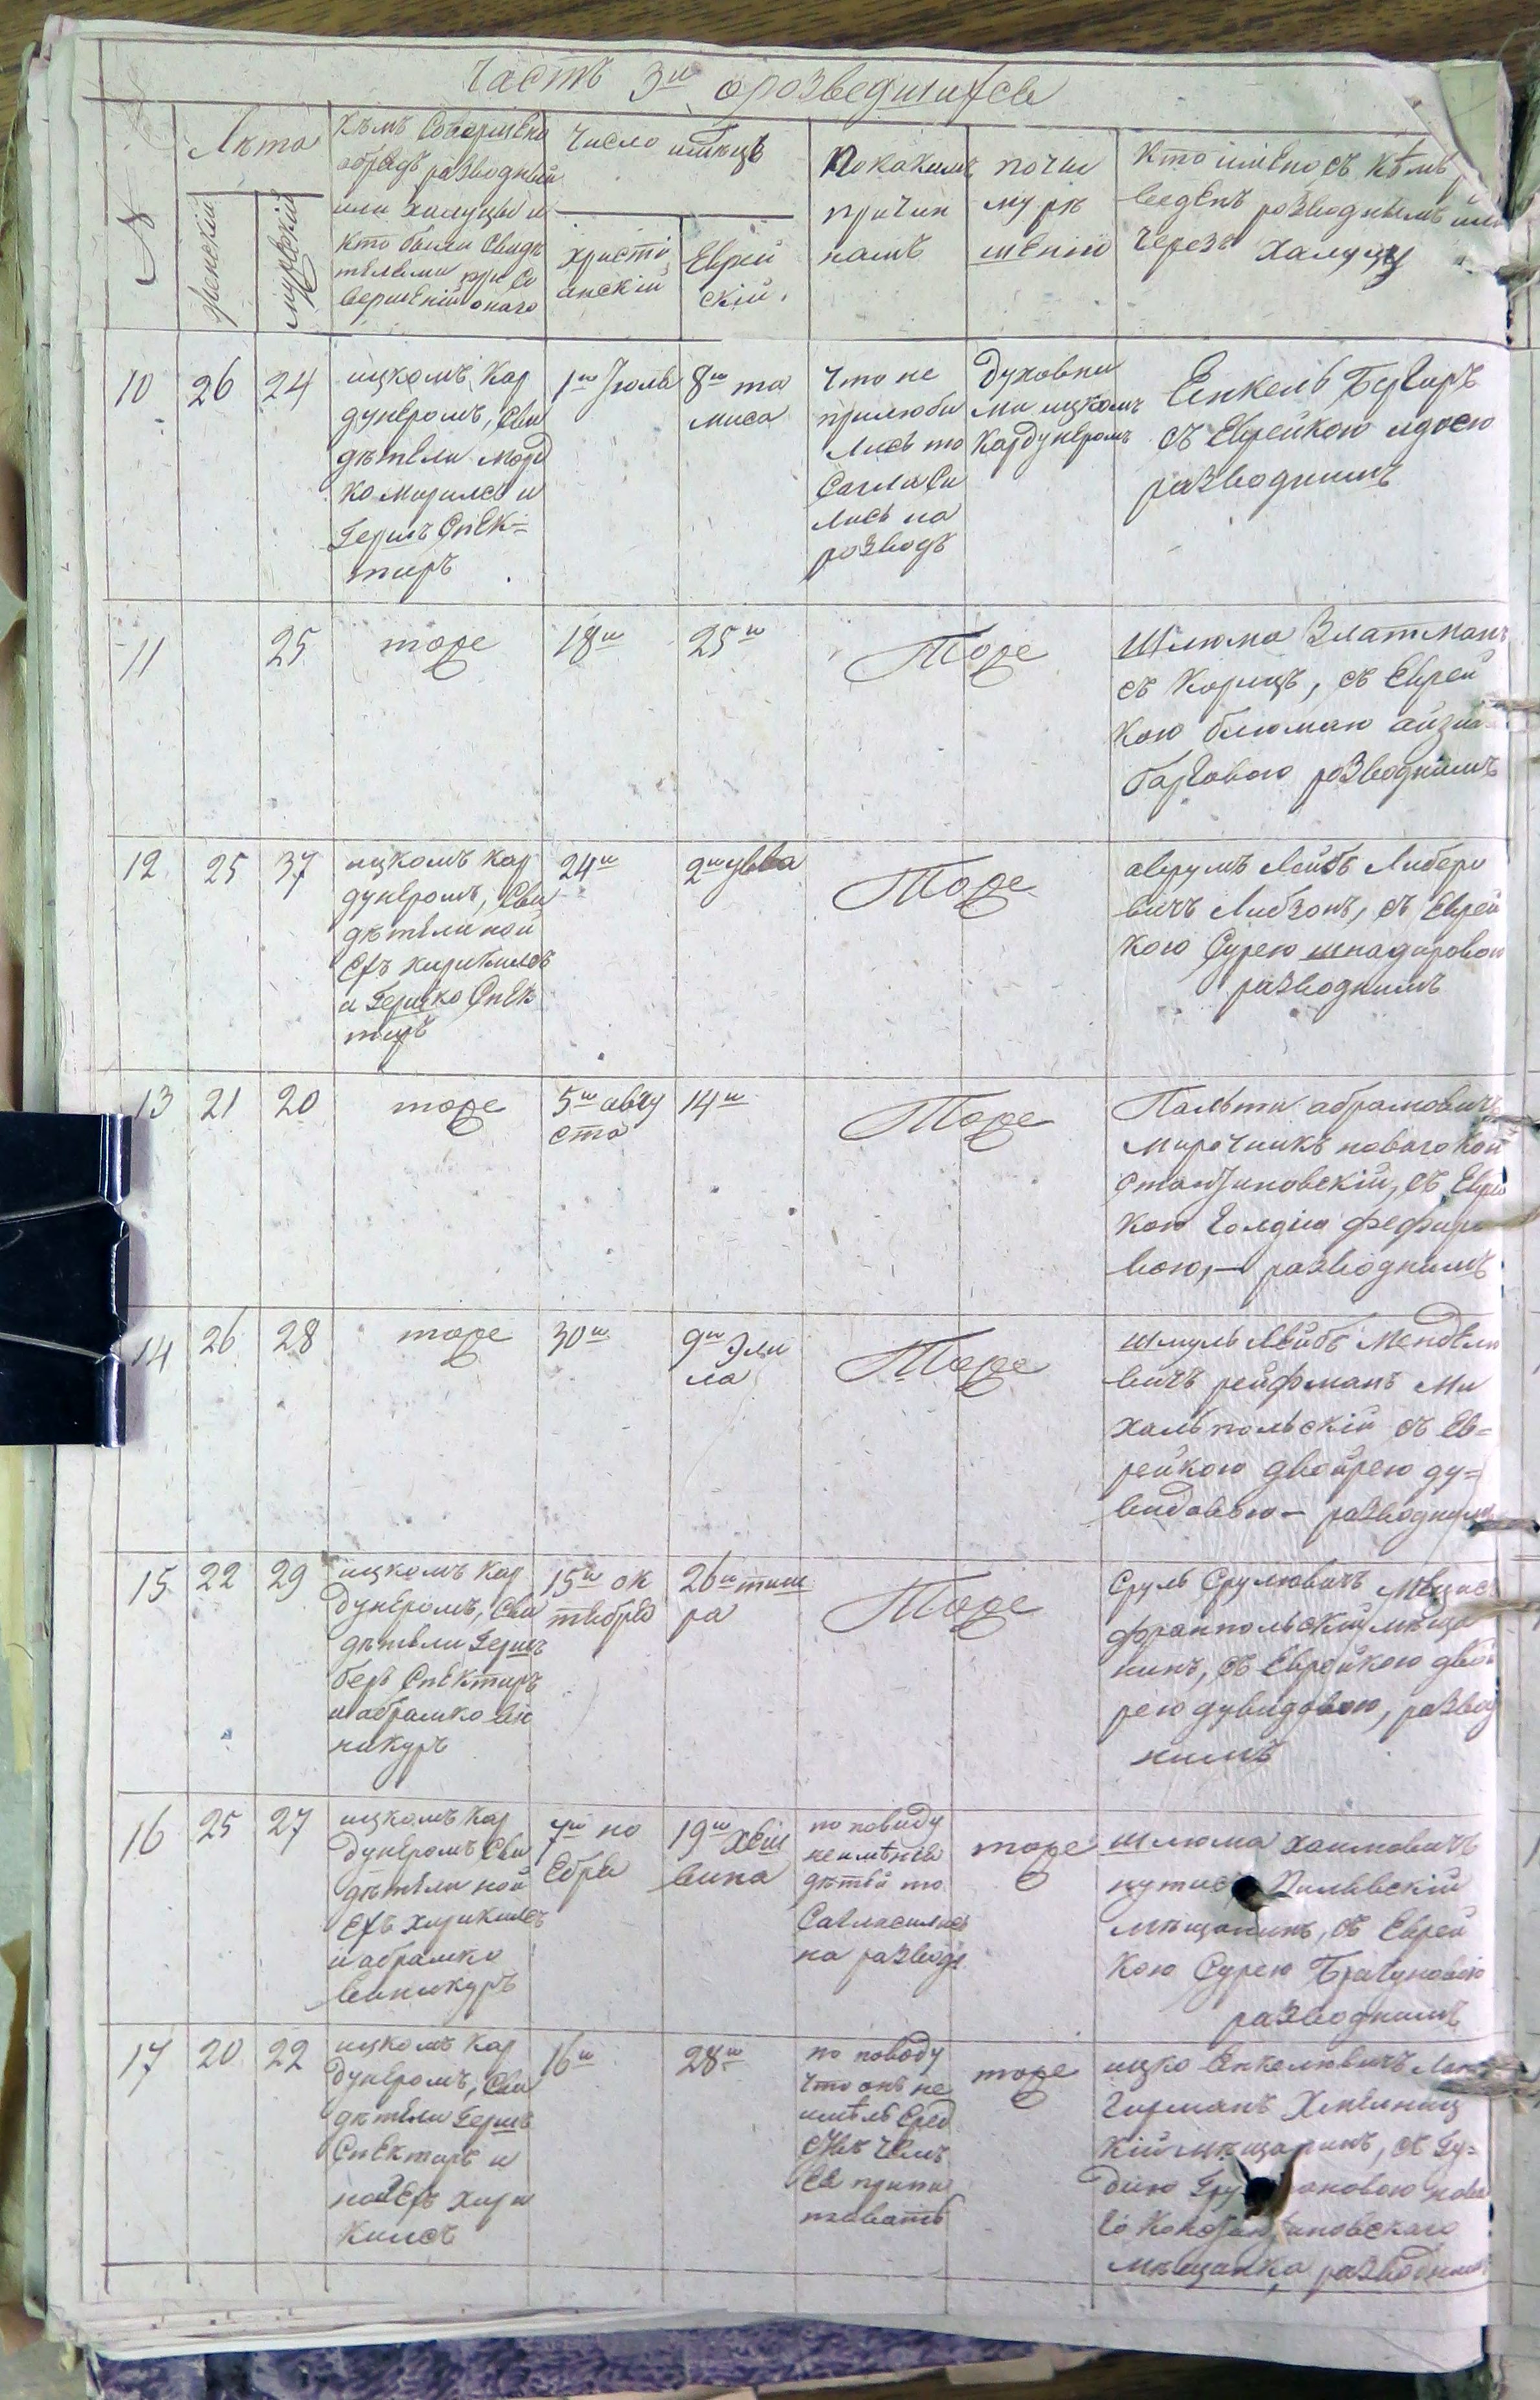 Часть 3я о розведшихся
№
Лѣта
женский
мужский
Кѣмъ Совершено
обрядъ разводный
или халуцы и
кто были Свидѣ
телями при Со
вершеній онаго
Число и мѣсецъ
христі
анскій
Еврей
скій
По какимъ
причин
намъ
по чіи
му рѣ
шенію
Кто имѣно съ кѣмъ
веденъ розводнымъ или
черезъ халуцу
10
26
24
ицкомъ Кар
дунеромъ, Сви
дѣтели Морд
ко и
Гершъ Спек=
тиръ
1го Іюль
8го та
миса
Что не
прилюби
лись то
Согласи
лись на
розводъ
Духовны
ми ицкомъ
Кардунеромъ
Енкель Бергиръ
съ Еврейкою
разводнимъ
11
25
тоже
18го
25го
Тоже
Шлюма Златманъ
съ Корицъ, съ Еврей
кою блюмою айзин
барговою розводнимъ
12
25
37
ицкомъ Кар
дунеромъ, Сви
дѣтели ной
Ехъ
и Гершко Спек
тиръ
24го
2го увва
Тоже
аврумъ Лейбъ Либеро
вичъ Либзонъ, съ Еврей
кою Сурею шнадировою
разводнимъ
13
21
20
тоже
5го авгу
ста
14го
Тоже
Пальти абрамовичъ
Мирочникъ новаго Кон
стантиновскій, съ Еврей
кою Голдію
вою,— разводнимъ
14
26
28
тоже
30го
9го Эли
ла
Тоже
Шмуль Лейбъ Мендели
вичъ рейфманъ Ми
хальпольскій съ Ев=
рейкою двойрею ду=
видовою— разводнимъ
15
22
29
ицкомъ Кар
дунеромъ, Сви
дѣтели Гершъ
беръ Спектиръ
и абрамко Ви
никуръ
15го ок
тября
26го тиш
ра
Тоже
Сруль Срулювичъ
франпольскій мѣща
нинъ, съ Еврейкою двой
рею дувидовою, развод
нимъ
16
25
27
ицкомъ Кар
дунеромъ Сви
дѣтели ной
Ехъ
и абрамко
Виникуръ
7го но
ебря
19го Хеш
вина
по поводу
неимѣнія
дѣтей то
Согласились
на разводъ
тоже
Шлюма хаимовичъ
Пилявскій
мѣщанинъ, съ Еврей
кою Сурею Брагуновою
разводнимъ
17
20
22
ицкомъ Кар
дунеромъ, Сви
дѣтели Гершъ
Спектиръ и
16го
28го
по поводу
что онъ не
имѣлъ Сред
ствъ чемъ
Ея пропи
тывать
тоже
ицко Енкелювичъ
Хмелниц
кій мѣщанинъ, съ Гу=
дію
го Константиновскаго
мѣщанка разводнимъ